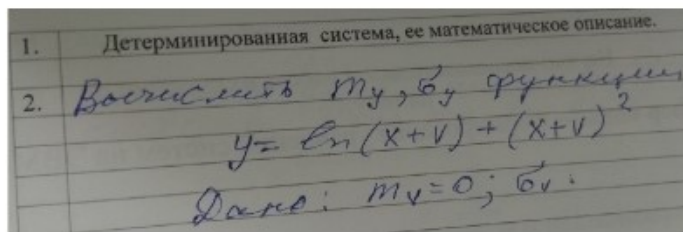 1. Детерминированная система, ее математическое описание.
2. Вычислить m_y, σ_y функции
y = ln(x+v) + (x+v)²
Дано: m_v=0; σ_v.